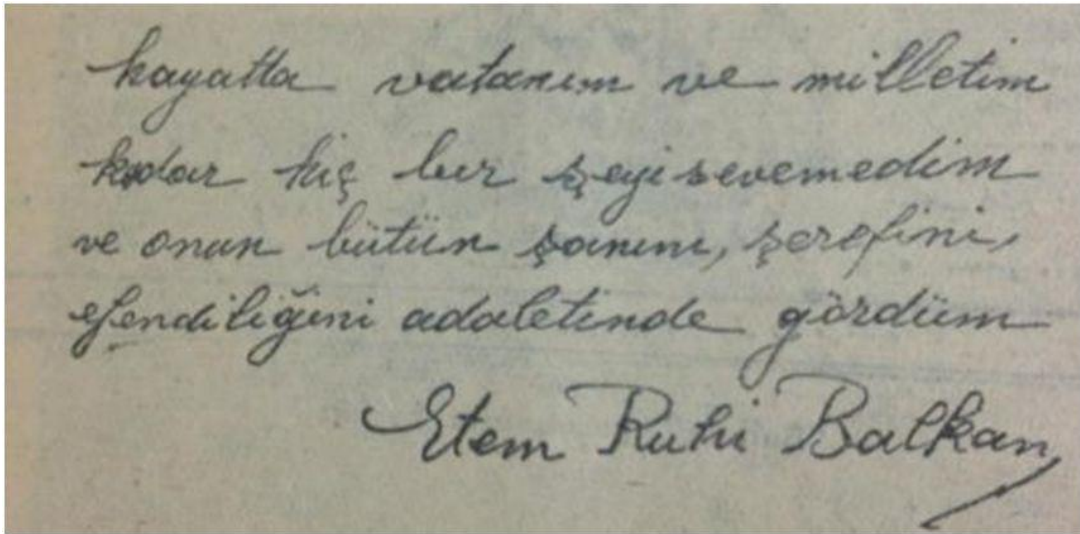 hayatta vatanım ve milletim
kadar hiç bir şeyi sevemedim
ve onun bütün şanını, şerefini,
efendiliğini adaletinde gördüm
Etem Ruhi Balkan